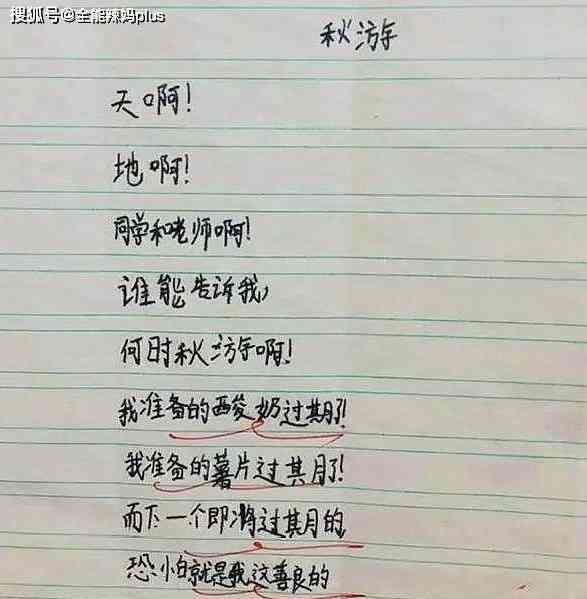 搜狐号@全能辣妈plus
秋游
天啊!
地啊!
同学和老师啊!
谁能告诉我,
何时秋游啊!
我准备的酸奶过期了!
我准备的薯片过期了!
而下一个即将过期的
恐怕就是我这善良的